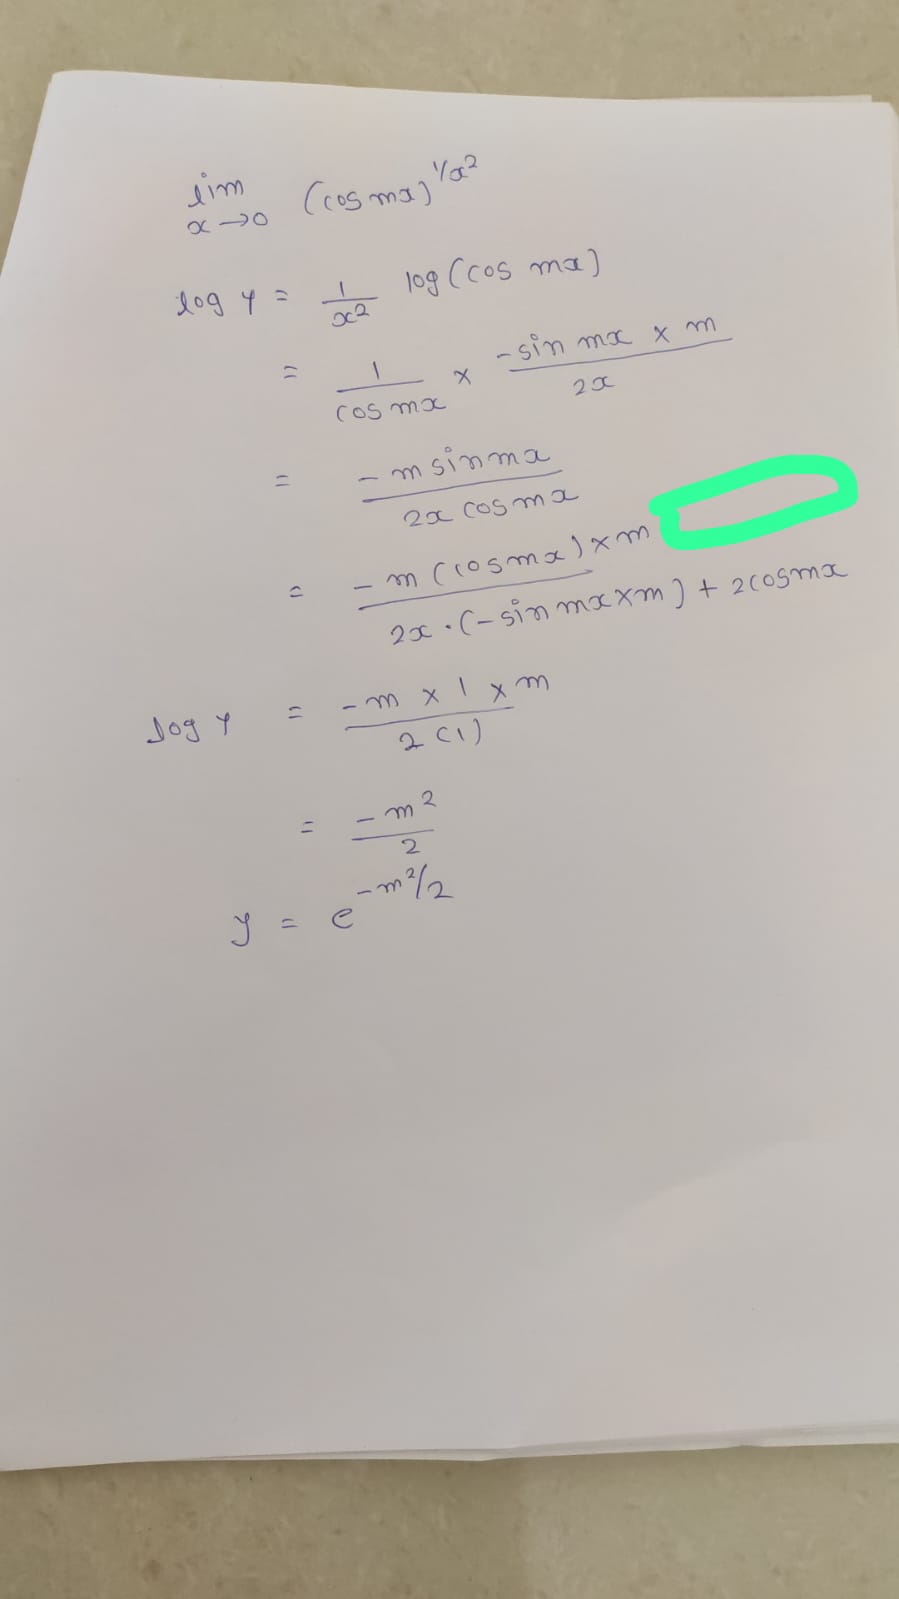 lim x→0 (cos mx)^1/x²
log y = 1/x² log (cos mx)
= 1/cos mx × -sin mx × m/2x
= -m sin mx/2x cos mx
= -m (cos mx) × m/2x · (-sin mx × m) + 2cos mx
log y = -m × 1 × m/2(1)
= -m²/2
y = e^-m²/2